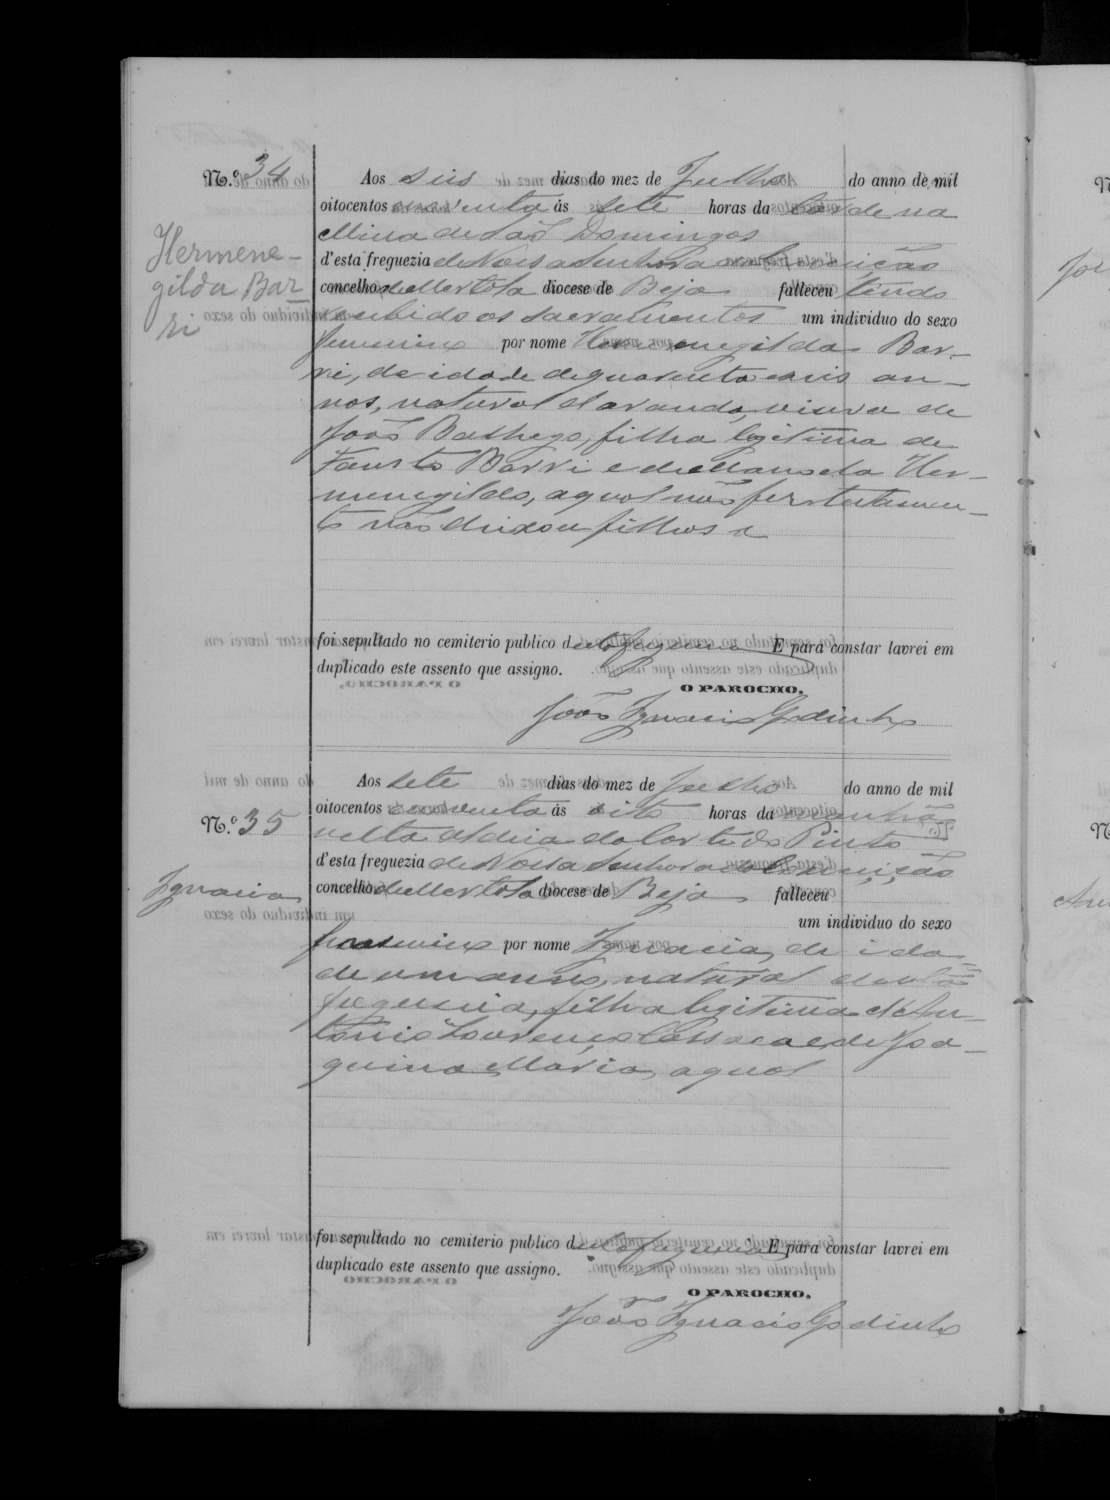 N.º 34
Aos seis dias do mez de Julho do anno de mil
oitocentos noventa ás sete horas da tarde na
Mina de São Domingos
d'esta freguezia de Nossa Senhora da Conceição
concelho de Mertola diocese de Beja falleceu tendo
recebido os sacramentos um individuo do sexo
femenino por nome Hermenegilda Bar-
ri, de idade de quarenta e seis an-
nos, natural d'Aranda, viuva de
João, filha legitima de
Fausto Barri e de Manoela Her-
menegilda, a qual não fez testamen-
to não deixou filhos e
foi sepultado no cemiterio publico desta freguezia E para constar lavrei em
duplicado este assento que assigno.
O PAROCHO,
João Ignacio Godinho
Hermene-
gilda Bar
ri
Aos sete dias do mez de Julho do anno de mil
oitocentos noventa ás oito horas da manhã
N.º 35
nesta aldeia da Corte do Pinto
d'esta freguezia de Nossa Senhora da Conceição
concelho de Mertola diocese de Beja falleceu
Ignacia
um individuo do sexo
femenino por nome Ignacia, de ida-
de um anno, natural desta
freguezia, filha legitima d'An-
tonio Lourenço e de Joa-
quina Maria, a qual
foi sepultado no cemiterio publico desta freguezia E para constar lavrei em
duplicado este assento que assigno.
O PAROCHO,
João Ignacio Godinho